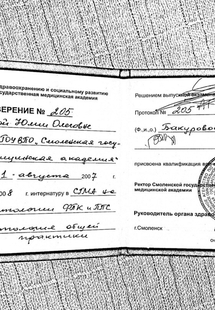 здравоохранению и социальному развитию
государственная медицинская академия
ВЕРЕНИЕ № 205
ой Юлии Олеговне
ГОУВПО „Смоленская госу-
ицинская академия"
1 - августа 2007 г.
8 г. интернатуру в
атологии ФПК и ППС
атология общей
практики
Решением выпускной экзамен
Протокол № 205
(Ф.и.о) Бакурово
присвоена квалификация в
Ректор Смоленской государст
медицинской академии
Руководитель органа здрав
г.Смоленск